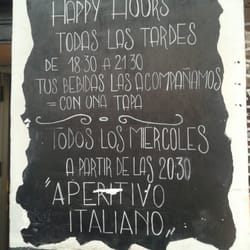 HAPPY HOURS
TODAS LAS TARDES
DE 18:30 A 21:30
TUS BEBIDAS LAS ACOMPAÑAMOS
= CON UNA TAPA
TODOS LOS MIERCOLES
A PARTIR DE LAS 20:30
"APERITIVO
ITALIANO"